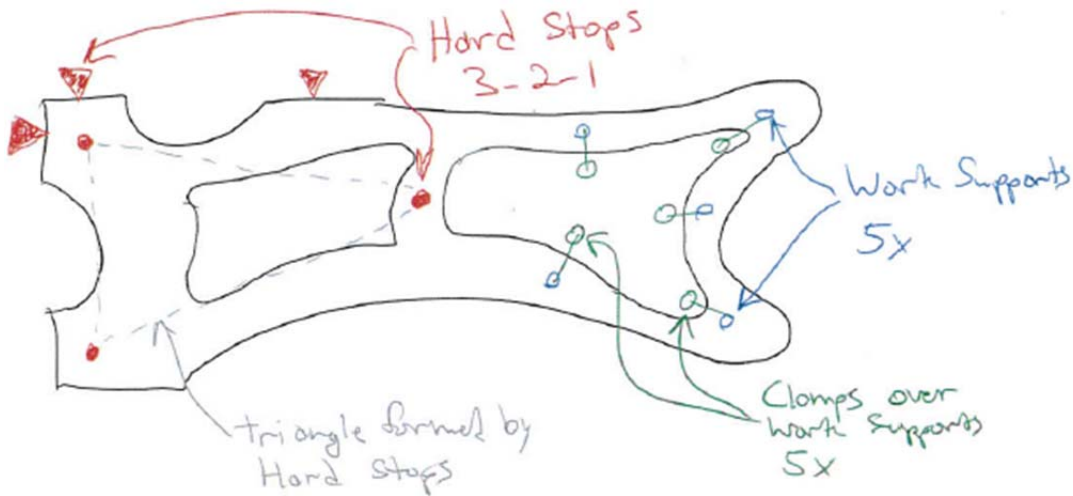 Hard Stops
3-2-1
Work Supports
5x
Clamps over
Work Supports
5x
triangle formed by
Hard Stops